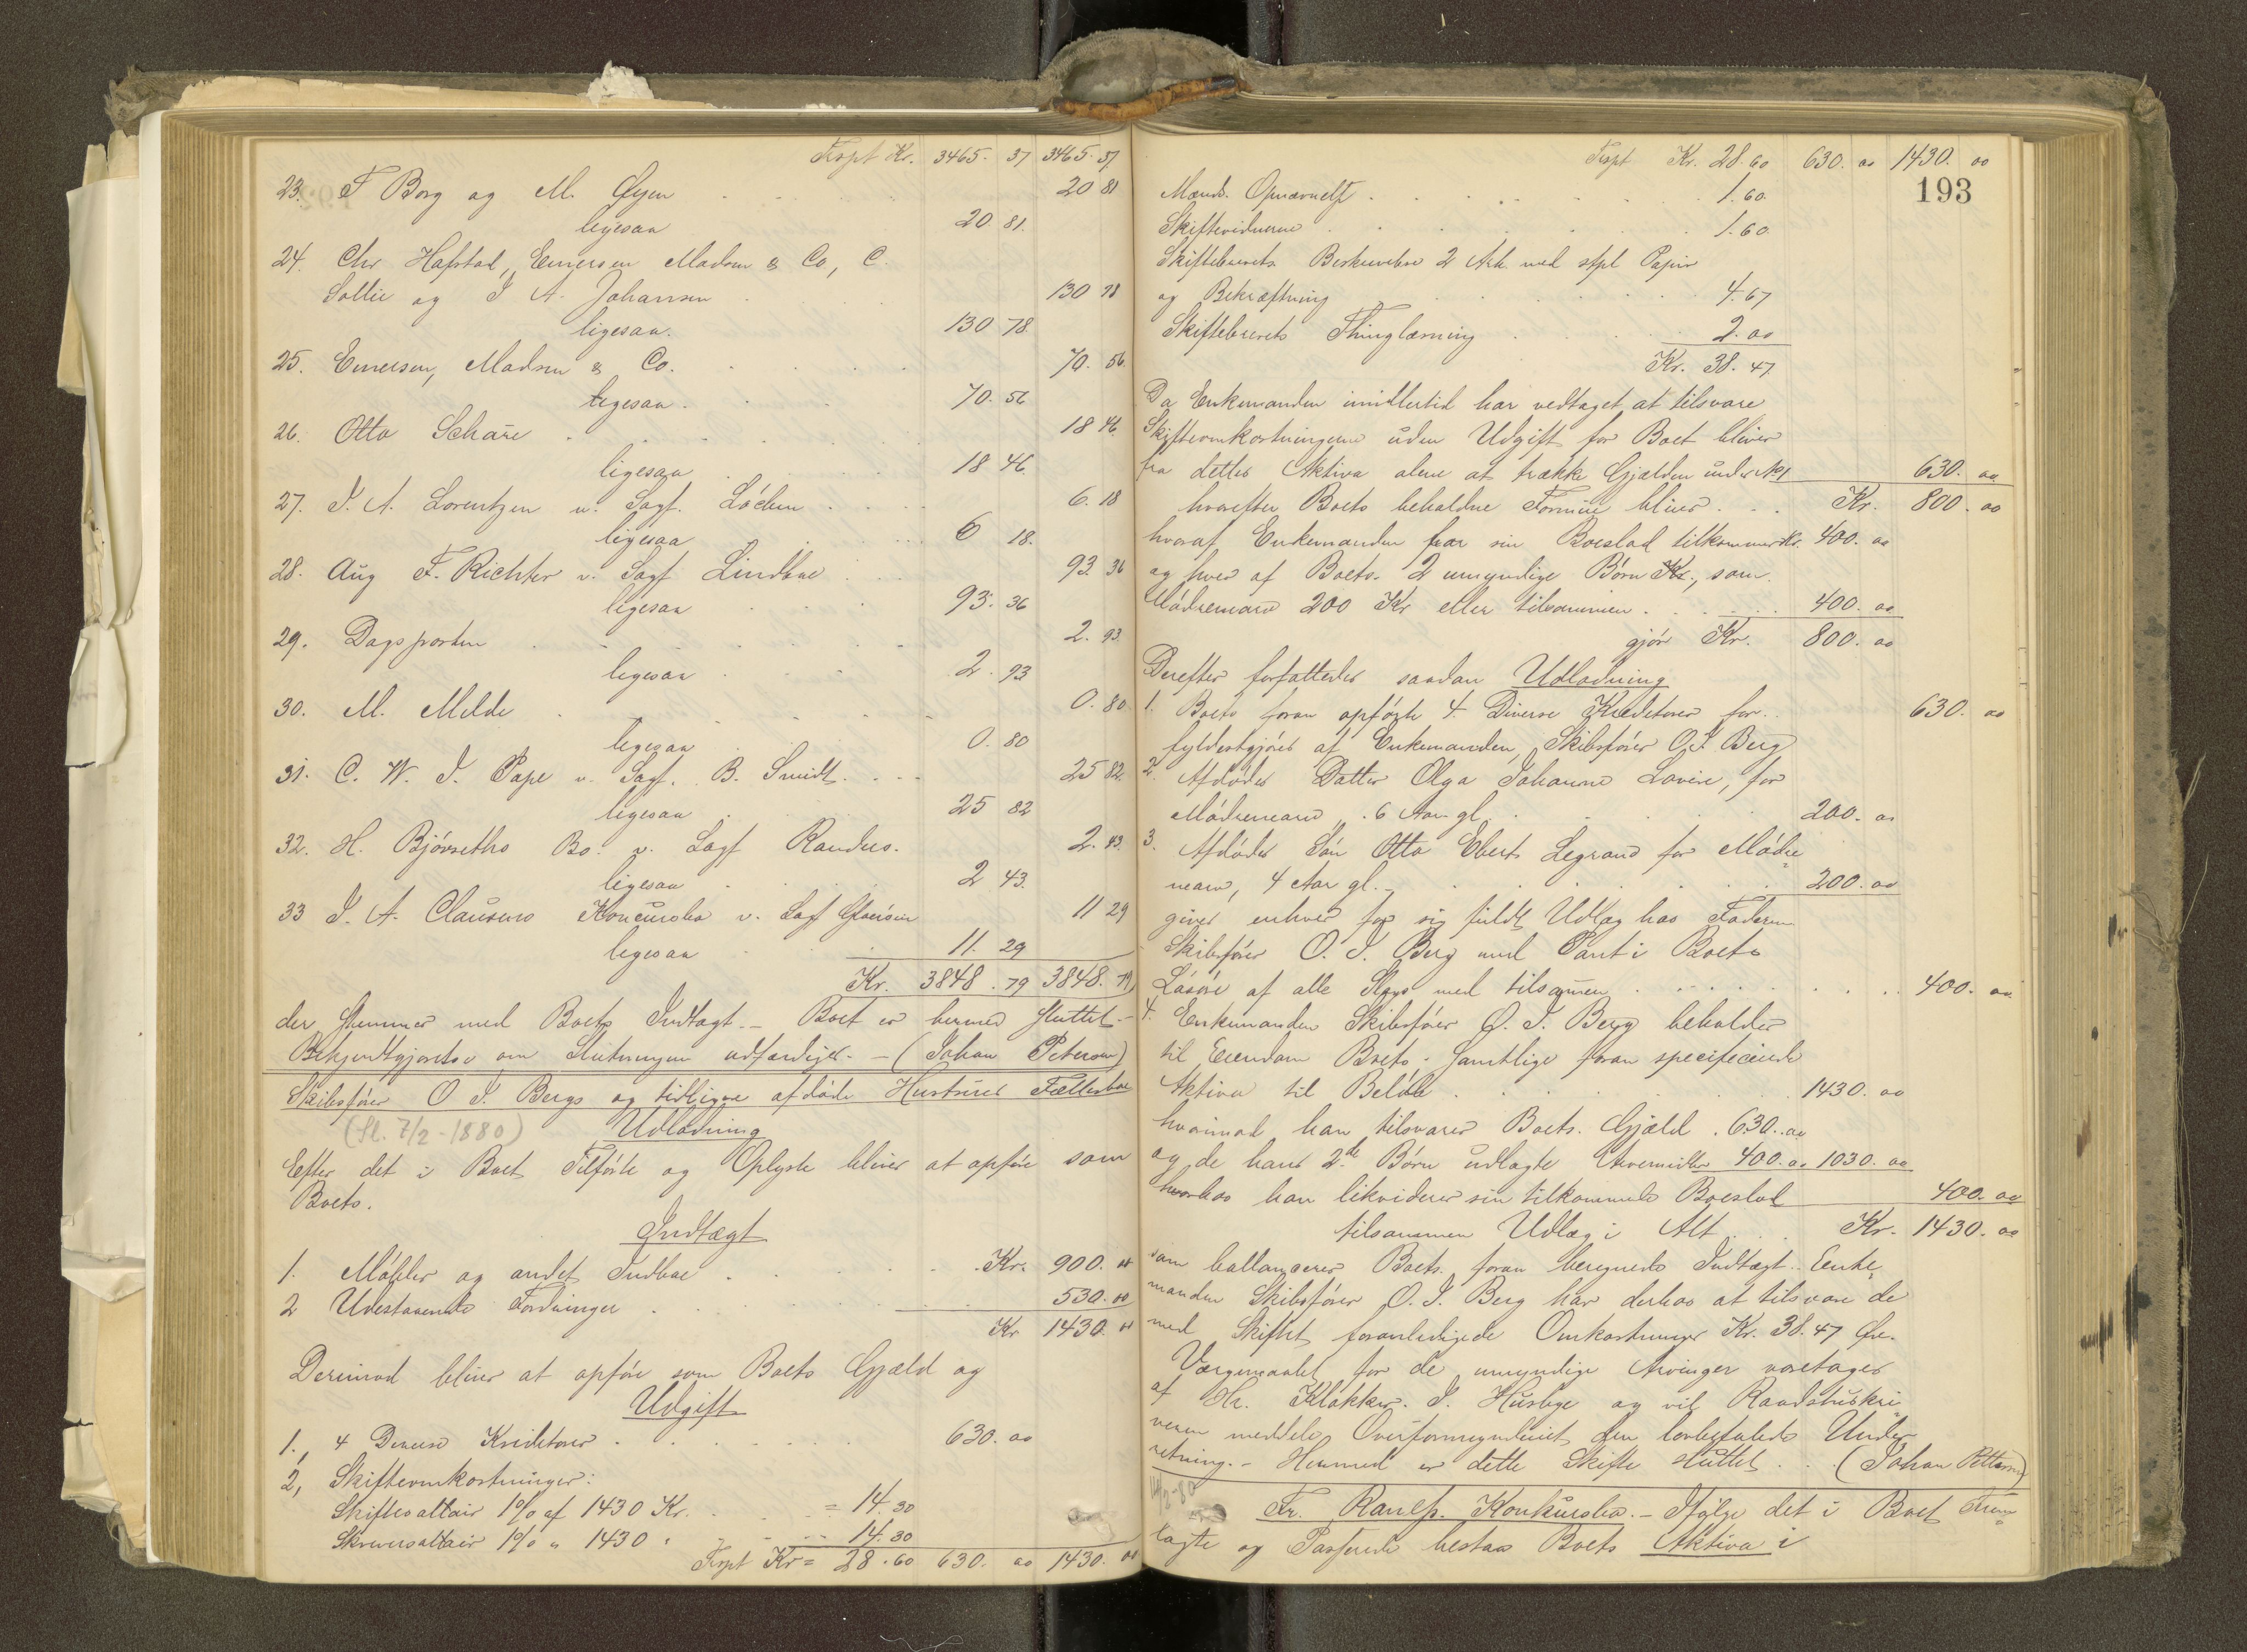 Trspt Kr. 3465. 37 3465. 37
23. F Borg og M. Øyen 20 81
ligesaa 20 81.
24. Chr Hafstad, Emersen Madsen & Co, C.
Sollie og I A. Johansen 130 78
ligesaa. 130 78.
25. Emersen, Madsen & Co. 70. 56.
ligesaa. 70. 56
26. Otto Schare 18 46.
ligesaa 18 46.
27. I. A. Lorentzen v. Sagf. Løchen 6. 18
ligesaa 6 18.
28. Aug F. Richter v. Sagf Lindboe 93. 36
ligesaa 93. 36
29. Dagsposten 2. 93.
ligesaa 2. 93
30. M. Melde 0. 80
ligesaa 0. 80
31. C. W. I. Pape v. Sagf. B. Smidt. 25 82.
ligesaa 25 82
32. H. Bjørseths Bo. v. Sagf Randers. 2. 43.
ligesaa 2 43.
33 I. A. Clausens Koncursbo v. Sagf 11 29
ligesaa 11. 29
Kr. 3848. 79 3848. 79
der stemmer med Boets Indtægt. – Boet er hermed sluttet. –
Bekjendtgjørelse om Slutningen udfærdiget. – (Johan Petersen)
Skibsfører O I. Bergs og tidligere afdøde Hustrues Fællesbo
(sl. 7/2 - 1880) Udlodning
Efter det i Boet Tilførte og Oplyste bliver at opføre som
Boets.
Indtægt
1. Møbler og andet Indboe Kr. 900. 00
2 Udestaaende Fordringer 530. 00
Kr 1430. 00
Derimod bliver at opføre som Boets Gjæld og
Udgift
1. 4 Diverse Kreditorer 630. 00
2, Skifteomkostninger:
Skiftesaltair 1% af 1430 Kr. = 14. 30
Skriversaltair 1% " 1430 " 14. 30
Trspt Kr = 28. 60 630. 00 1430. 00
Trspt Kr. 28. 60 630. 00 1430. 00
193
Mænds Opnævnelse 1. 60.
Skiftevidnerne 1. 60.
Skiftebrevets Beskrivelse 2 Ark med stpl Papir
og Bekræftning 4. 67
Skiftebrevets Thinglæsning 2. 00
Kr. 38. 47
Da Enkemanden imidlertid har vedtaget at tilsvare
Skifteomkostningerne uden Udgift for Boet bliver
fra dettes Aktiva alene at trække Gjælden under No 1 630. 00
hvorefter Boets beholdne Formue bliver Kr. 800. 00
hvoraf Enkemanden faar sin Boeslod tilkommer Kr. 400. 00
og hver af Boets 2 umyndige Børn Kr., som
Mødrenearv 200 Kr eller tilsammen 400. 00
gjør Kr. 800. 00
Derefter forfattedes saadan Udlodning
1. Boets foran opførte 4 Diverse Kreditorer for 630. 00
fyldestgjøres af Enkemanden, Skibsfører O. I. Berg
2. Afdødes Datter Olga Johanne Lovise, for
Mødrenearv, 6 Aar gl. 200. 00
3. Afdødes Søn Otto Ebert Legrand for Mødre
nearv, 4 Aar gl. 200. 00
gives enhver for sig fuldt Udlæg hos Faderen
Skibsfører O. I. Berg med Pant i Boets
Løsøre af alle Slags med tilsamen 400. 00
4. Enkemanden Skibsfører O. I. Berg beholder
til Eiendom Boets samtlige foran specificerede
Aktiva til Beløb 1430. 00
hvorimod han tilsvarer Boets Gjæld 630. 00
og de hans 2de Børn udlagte Arvemidler 400. 00 1030. 00
hvorhos han likviderer sin tilkommende Boeslod 400. 00
tilsammen Udlæg i Alt Kr. 1430. 00
som ballancerer Boets foran beregnede Indtægt. Enke
manden Skibsfører O. I. Berg har derhos at tilsvare de
med Skiftet foranledigede Omkostninger Kr. 38. 47 Øre.
Værgemaalet for de umyndige Arvinger varetages
af Hr. Kløkker I. Husbye og vil Raadstuskri
veren meddele Overformynderiet den lovbefalede Under
retning. – Hermed er dette Skifte sluttet. (Johan Pettersen)
14/2 - 80
Fr. Konkursbo. – Ifølge det i Boet Frem
lagte og Passerede bestaar Boets Aktiva i